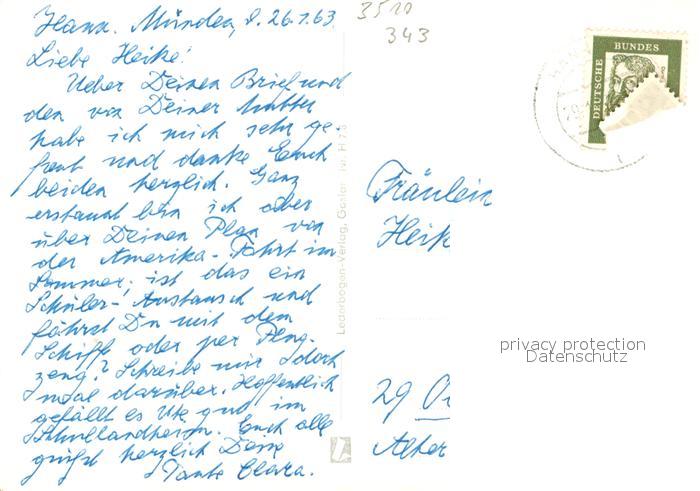 Hann. Münden, d. 26.1.63
Liebe Heike!
Ueber Deinen Brief und
den von Deiner Mutter
habe ich mich sehr ge-
freut und danke Euch
beiden herzlich. Ganz
erstaunt bin ich aber
über Deinen Plan von
der Amerika-Fahrt im
Sommer; ist das ein
Schüler-Austausch und
fährst Du mit dem
Schiff oder per Flug-
zeug? Schreibe mir doch
mal darüber. Hoffentlich
gefällt es Ute gut im
Schullandheim. Euch alle
grüßt herzlich Deine
Tante Clara.
Lederbogen-Verlag, Goslar
3510
343
DEUTSCHE
BUNDES
Fräulein
Heik
privacy protection
Datenschutz
29
Alter